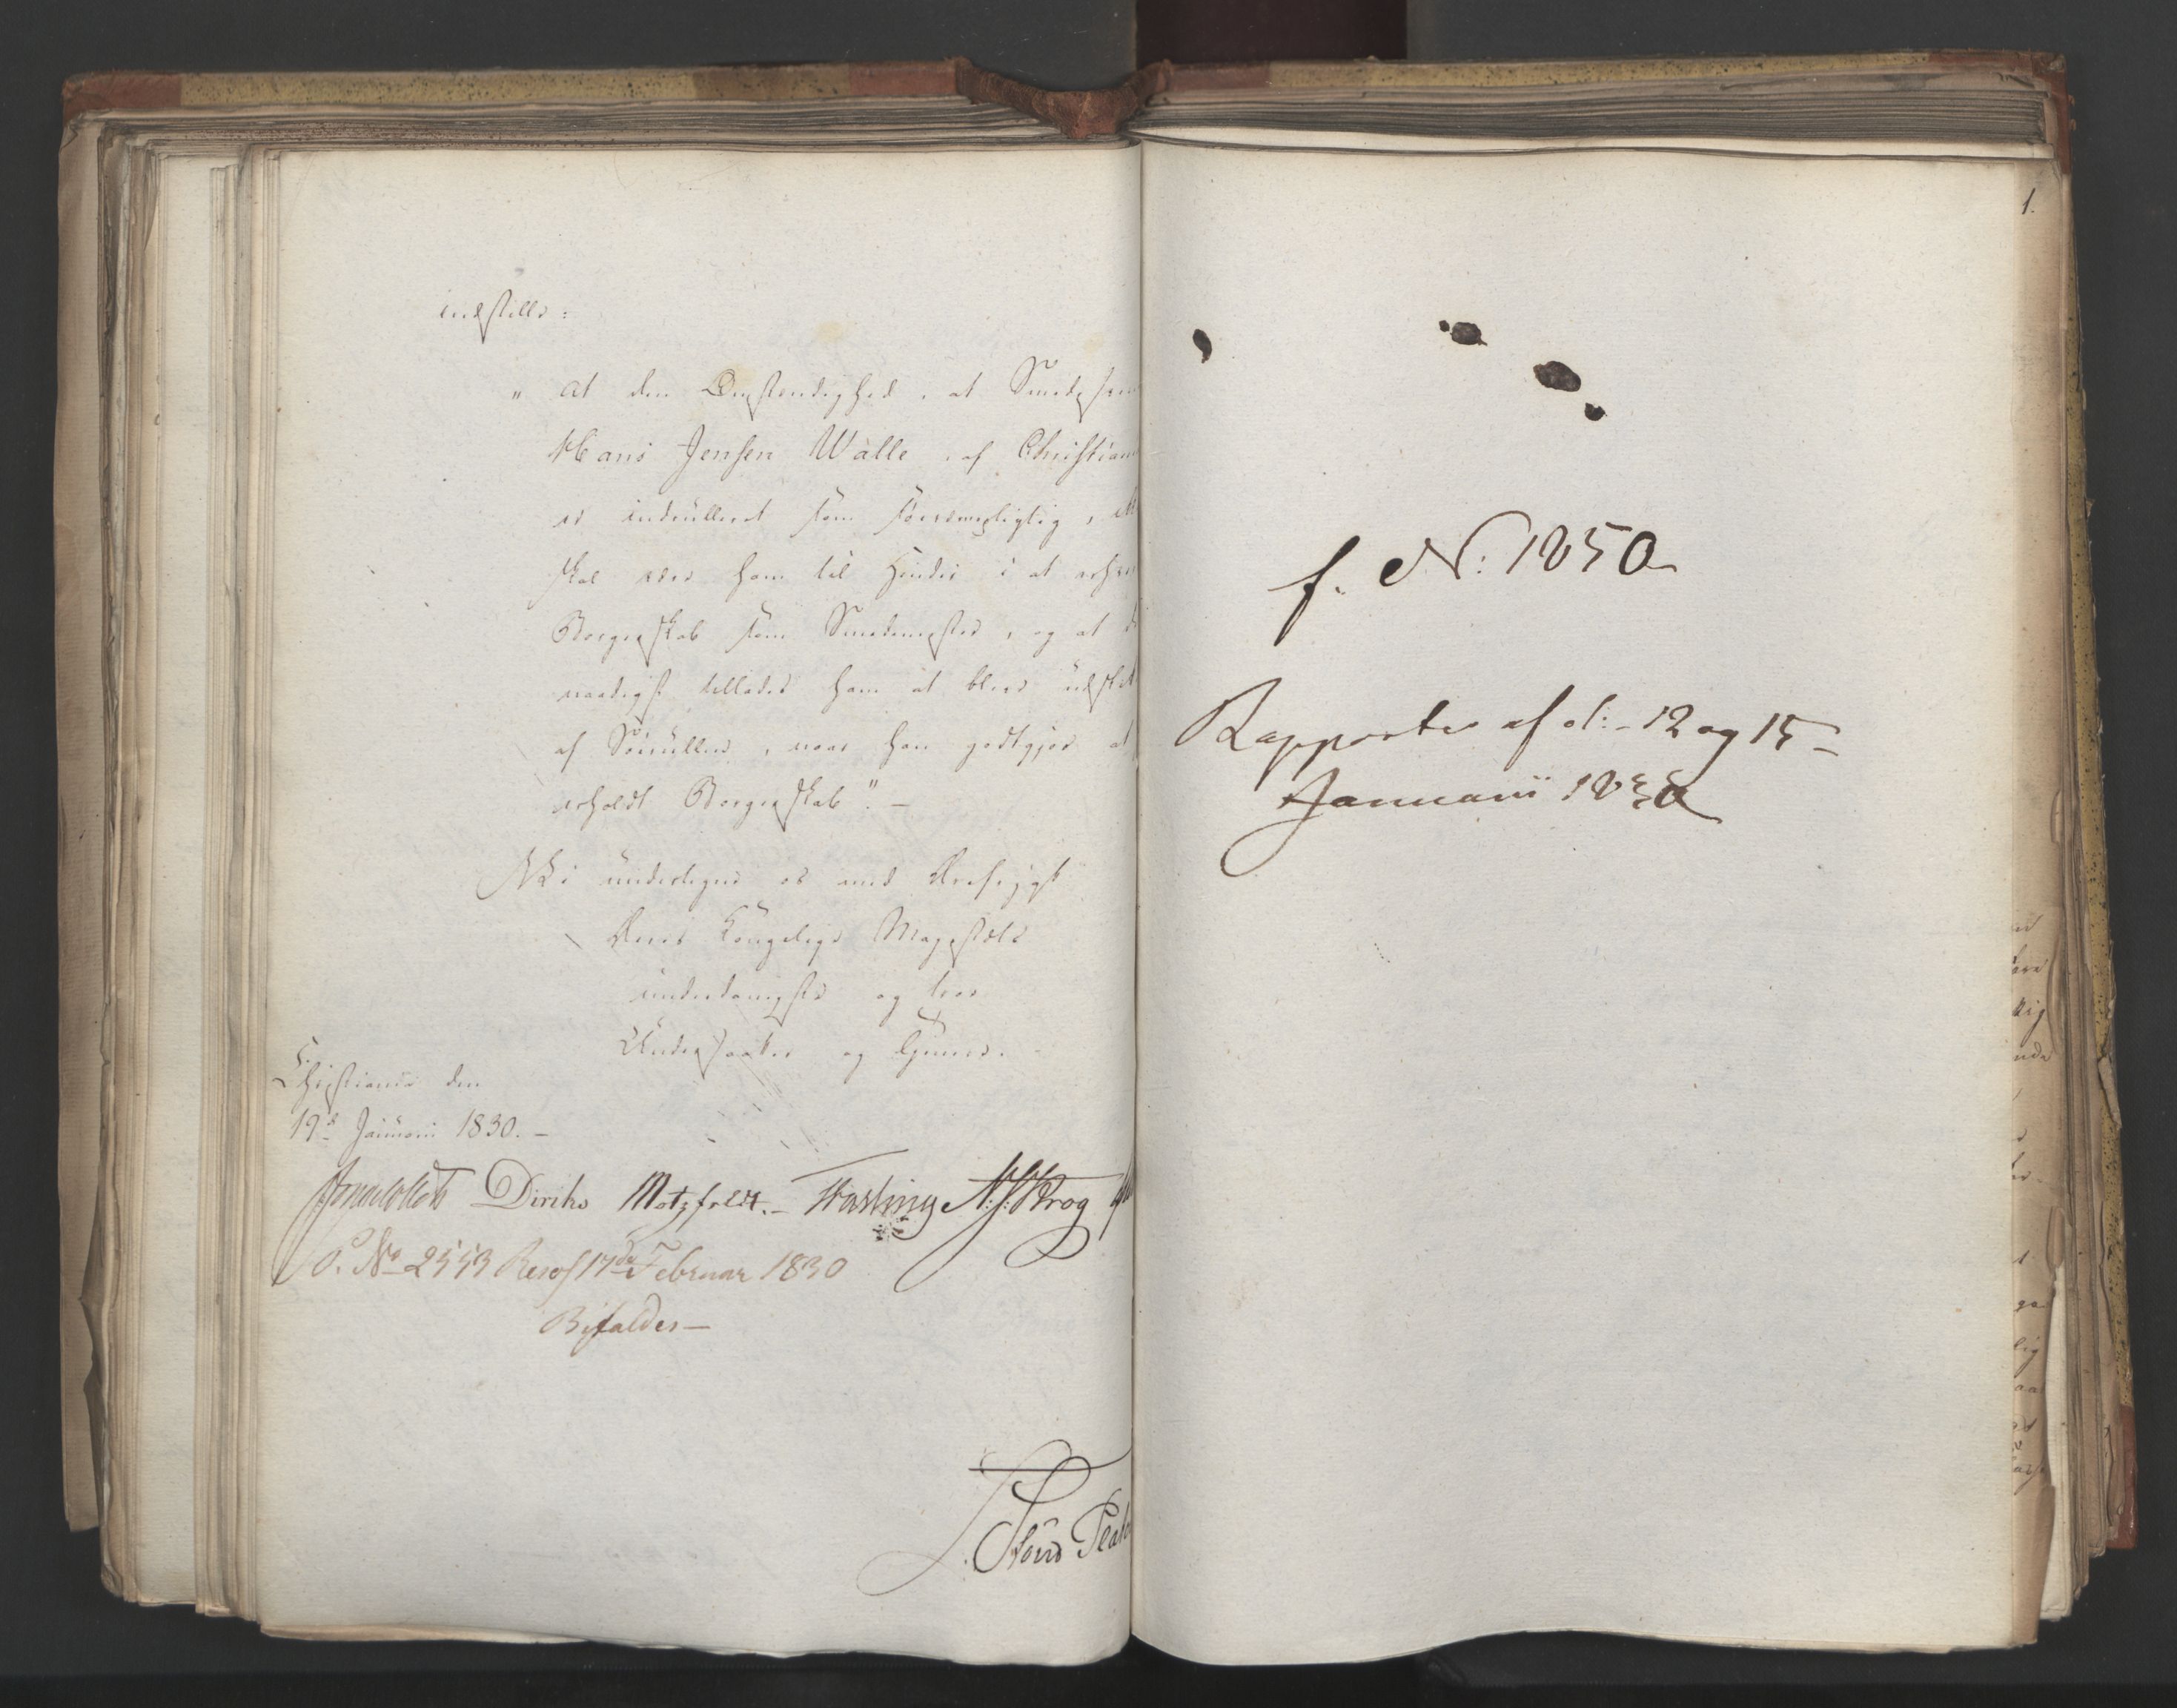 indstille:
" at den Omstendighed, at Smedesven
Hans Jensen Walle, af Christian
er indrulleret som søeværnepligtig, ikke
skal være ham til Hinder i at erhver
Borgerskab som Smedemester, og at
naadigst tillades ham at blive udslet
af Søerullerne, naar han godtgjør at
erholdt Borgerskab". —
Vi undertegne os med Ærefrygt
Deres Kongelige Majestæts
underdanigste og troe
Undersaatter og Tjenere.
Christiania den
19de Januarii 1830. —
Diriks Motzfeldt. — Fasting N. J. Krog
P. No 2553 Resol 17de Februar 1830
Bifaldes —
1.
f. N: 1850
Rapporter af d: - 12 og 15 —
Januarii 1830